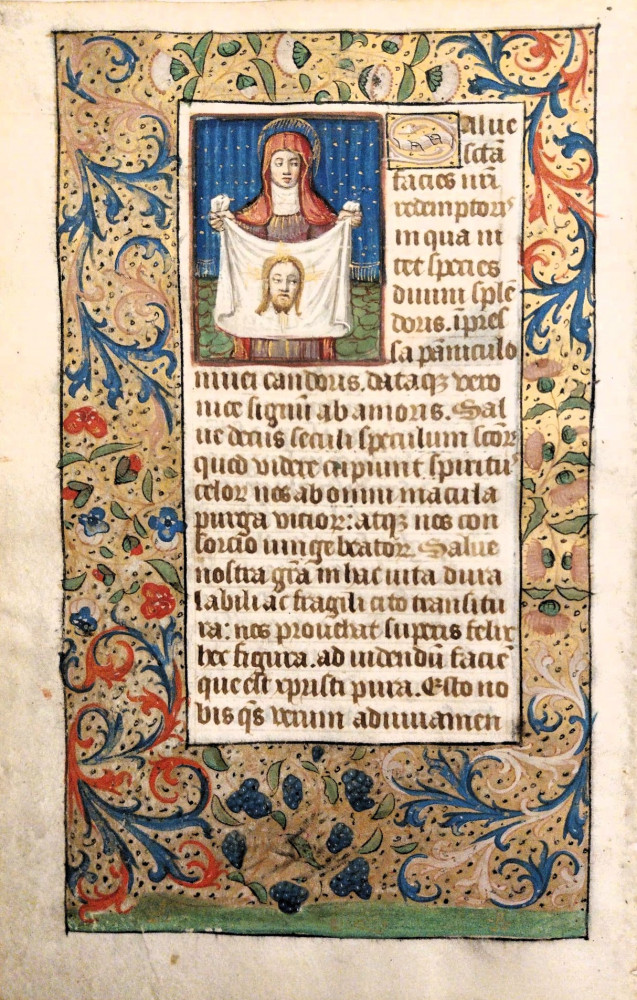 Salue
sctā
facies nrī
redemptoris
in qua ni
tet species
diuini splē
doris. īpres
sa pāniculo
niuei candoris. dataqz vero
nice signū ab amoris. Sal
ue decus seculi speculum scōꝝ
quod videre cupiunt spiritus
celoꝝ nos ab omni macula
purga vicioꝝ: atqz nos con
sorcio iunge beatoꝝ. Salue
nostra gīra in hac uita dura
labili ac fragili cito transitu
ra: nos prouehat superis felix
hec figura. ad uidendū faciē
que est xpristi pura. Esto no
bis qs verum adiuuamen